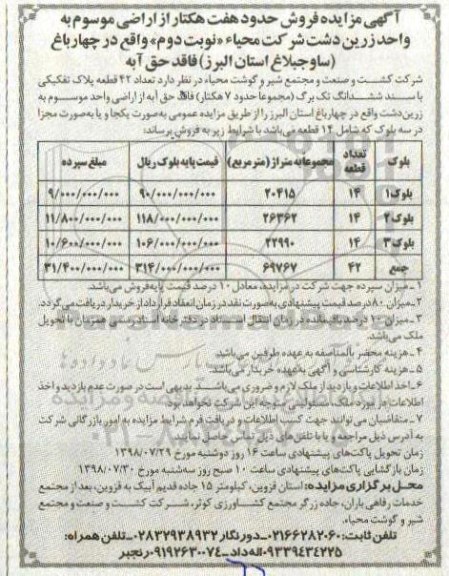 آگهی مزایده فروش حدود هفت هکتار از اراضی موسوم به
واحد زرین دشت شرکت محیاء «نوبت دوم» واقع در چهارباغ
(ساوجبلاغ استان البرز) فاقد حق آبه
شرکت کشت و صنعت و مجتمع شیر و گوشت محیاء در نظر دارد تعداد ۴۲ قطعه پلاک تفکیکی
با سند ششدانگ تک برگ (مجموعا حدود ۷ هکتار) فاقد حق آبه از اراضی واحد موسوم به
زرین‌دشت واقع در چهارباغ استان البرز را از طریق مزایده عمومی به‌صورت یکجا و یا به‌صورت مجزا
در سه بلوک که شامل ۱۴ قطعه می‌باشد با شرایط زیر به فروش برساند:
بلوک تعداد قطعه مجموعه متراژ (مترمربع) قیمت پایه بلوک ریال مبلغ سپرده
بلوک۱ ۱۴ ۲۰۴۱۵ ۹۰/۰۰۰/۰۰۰/۰۰۰ ۹/۰۰۰/۰۰۰/۰۰۰
بلوک۲ ۱۴ ۲۶۳۶۲ ۱۱۸/۰۰۰/۰۰۰/۰۰۰ ۱۱/۸۰۰/۰۰۰/۰۰۰
بلوک۳ ۱۴ ۲۲۹۹۰ ۱۰۶/۰۰۰/۰۰۰/۰۰۰ ۱۰/۶۰۰/۰۰۰/۰۰۰
جمع ۴۲ ۶۹۷۶۷ ۳۱۴/۰۰۰/۰۰۰/۰۰۰ ۳۱/۴۰۰/۰۰۰/۰۰۰
۱ـ میزان سپرده جهت شرکت در مزایده، معادل ۱۰ درصد قیمت پایه فروش می‌باشد.
۲ـ میزان ۸۰ درصد قیمت پیشنهادی به‌صورت نقد در زمان انعقاد قرارداد از خریدار دریافت می‌گردد.
۳ـ میزان ۲۰ درصد باقیمانده در زمان انتقال اسناد در دفترخانه اسناد رسمی همزمان با تحویل
ملک می‌باشد.
۴ـ هزینه محضر بالمناصفه به عهده طرفین می‌باشد.
۵ـ هزینه کارشناسی و آگهی به‌عهده خریدار می‌باشد.
۶ـ اخذ اطلاعات و بازدید از ملک لازم و ضروری می‌باشد. بدیهی است در صورت عدم بازدید و اخذ
اطلاعات در مورد ملک، مسئولیتی متوجه این شرکت نخواهد بود.
۷ـ متقاضیان می‌توانند جهت کسب اطلاعات و دریافت فرم شرایط مزایده به امور بازرگانی شرکت
به آدرس ذیل مراجعه و یا با تلفن‌های ذیل تماس حاصل نمایند.
زمان تحویل پاکت‌های پیشنهادی ساعت ۱۶ روز دوشنبه مورخ ۱۳۹۸/۰۷/۲۹
زمان بازگشایی پاکت‌های پیشنهادی ساعت ۱۰ صبح روز سه‌شنبه مورخ ۱۳۹۸/۰۷/۳۰
محل برگزاری مزایده: استان قزوین، کیلومتر ۱۵ جاده قدیم آبیک به قزوین، بعد از مجتمع
خدمات رفاهی باران، جاده زرگر مجتمع کشاورزی کوثر، شرکت کشت و صنعت و مجتمع
شیر و گوشت محیاء.
تلفن ثابت: ۰۲۱۶۶۲۸۲۰۶۰ـ دورنگار ۰۲۸۳۲۹۳۸۹۳۲ـ تلفن همراه:
۰۹۳۳۹۴۳۴۲۲۵ اله‌داد ـ ۰۹۱۹۲۶۳۰۰۷۴ رنجبر